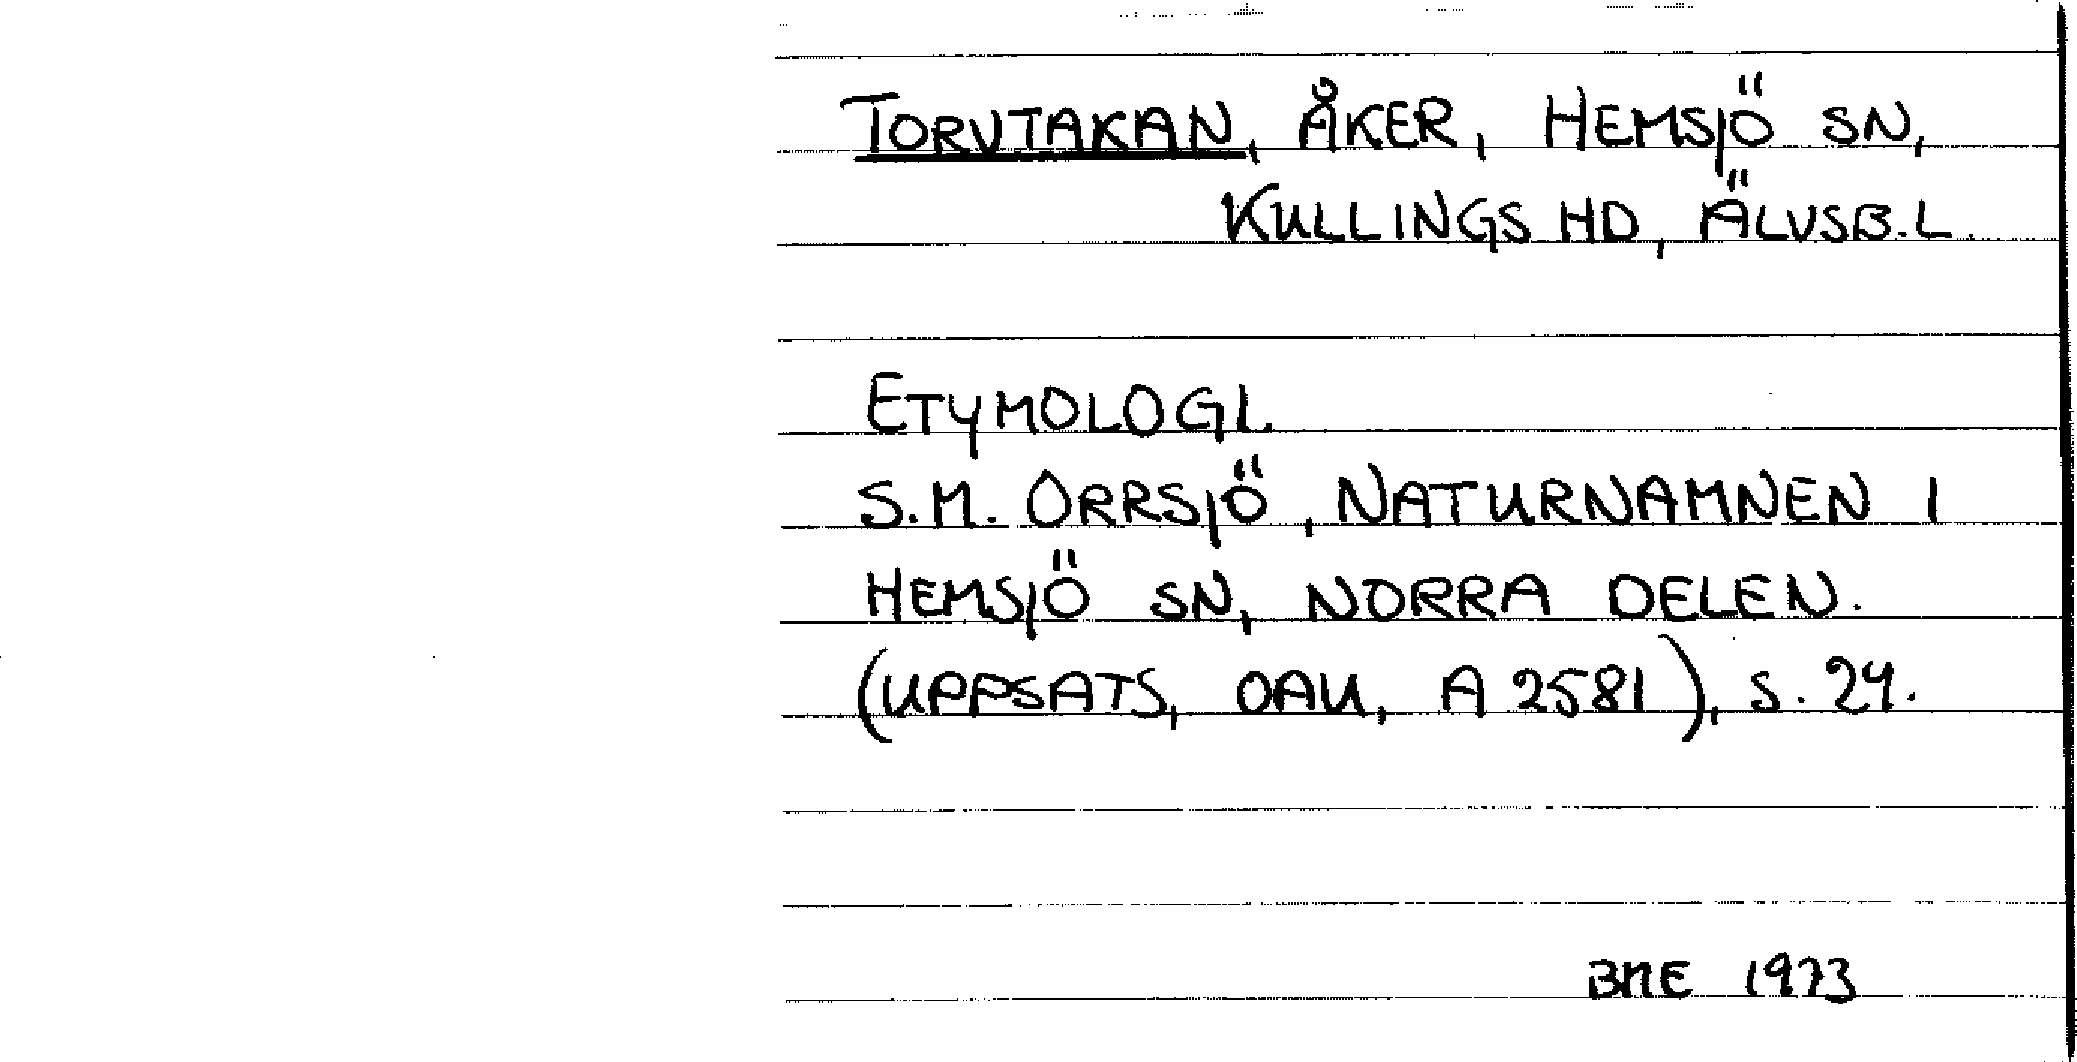 TORVTAKAN, ÅKER, HEMSJÖ SN,
KULLINGS HD, ÄLVSB. L.
ETYMOLOGI.
S.M. ORRSJÖ, NATURNAMNEN I
HEMSJÖ SN, NORRA DELEN.
(UPPSATS, OAU, A 2581), S. 24.
BME 1973